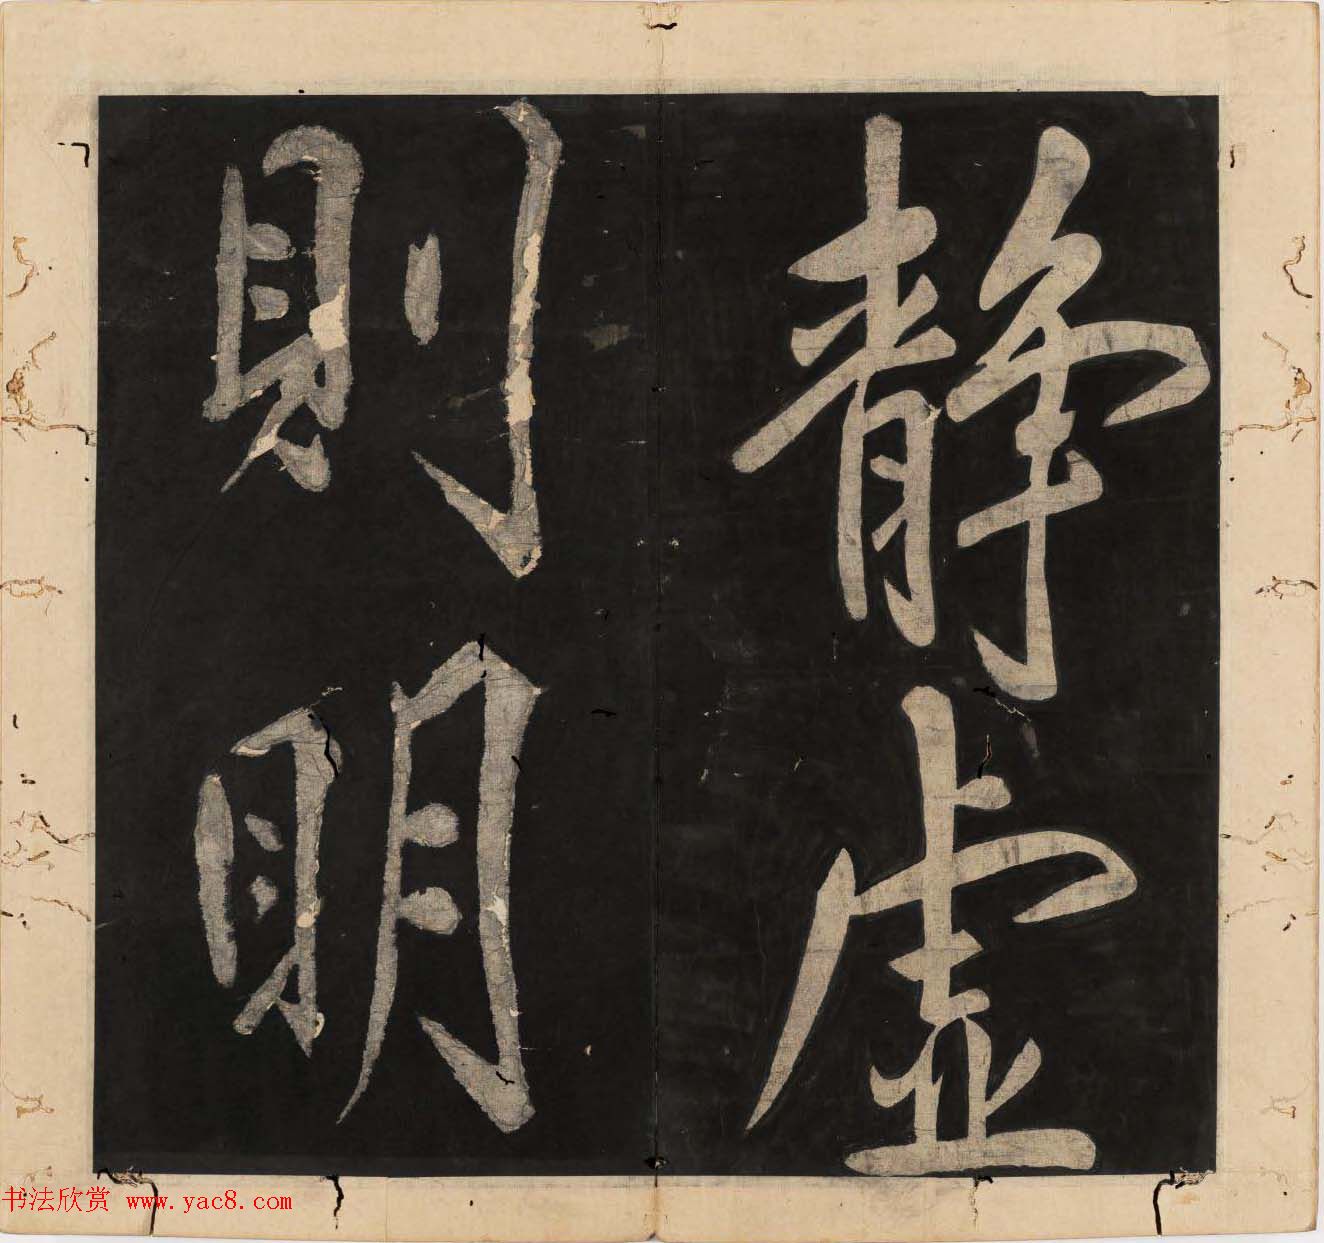 静虚
則明
书法欣赏 www.yac8.com